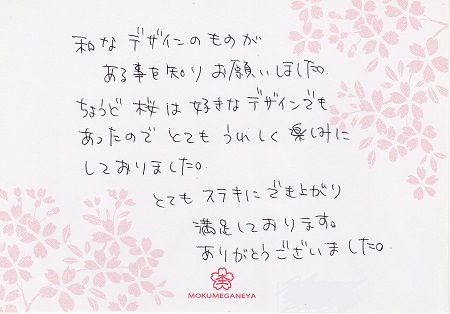 和なデザインのものが
ある事を知りお願いしました。
ちょうど桜は好きなデザインでも
あったのでとてもうれしく楽しみに
しておりました。
とてもステキにでき上がり
満足しております。
ありがとうございました。
MOKUMEGANEYA